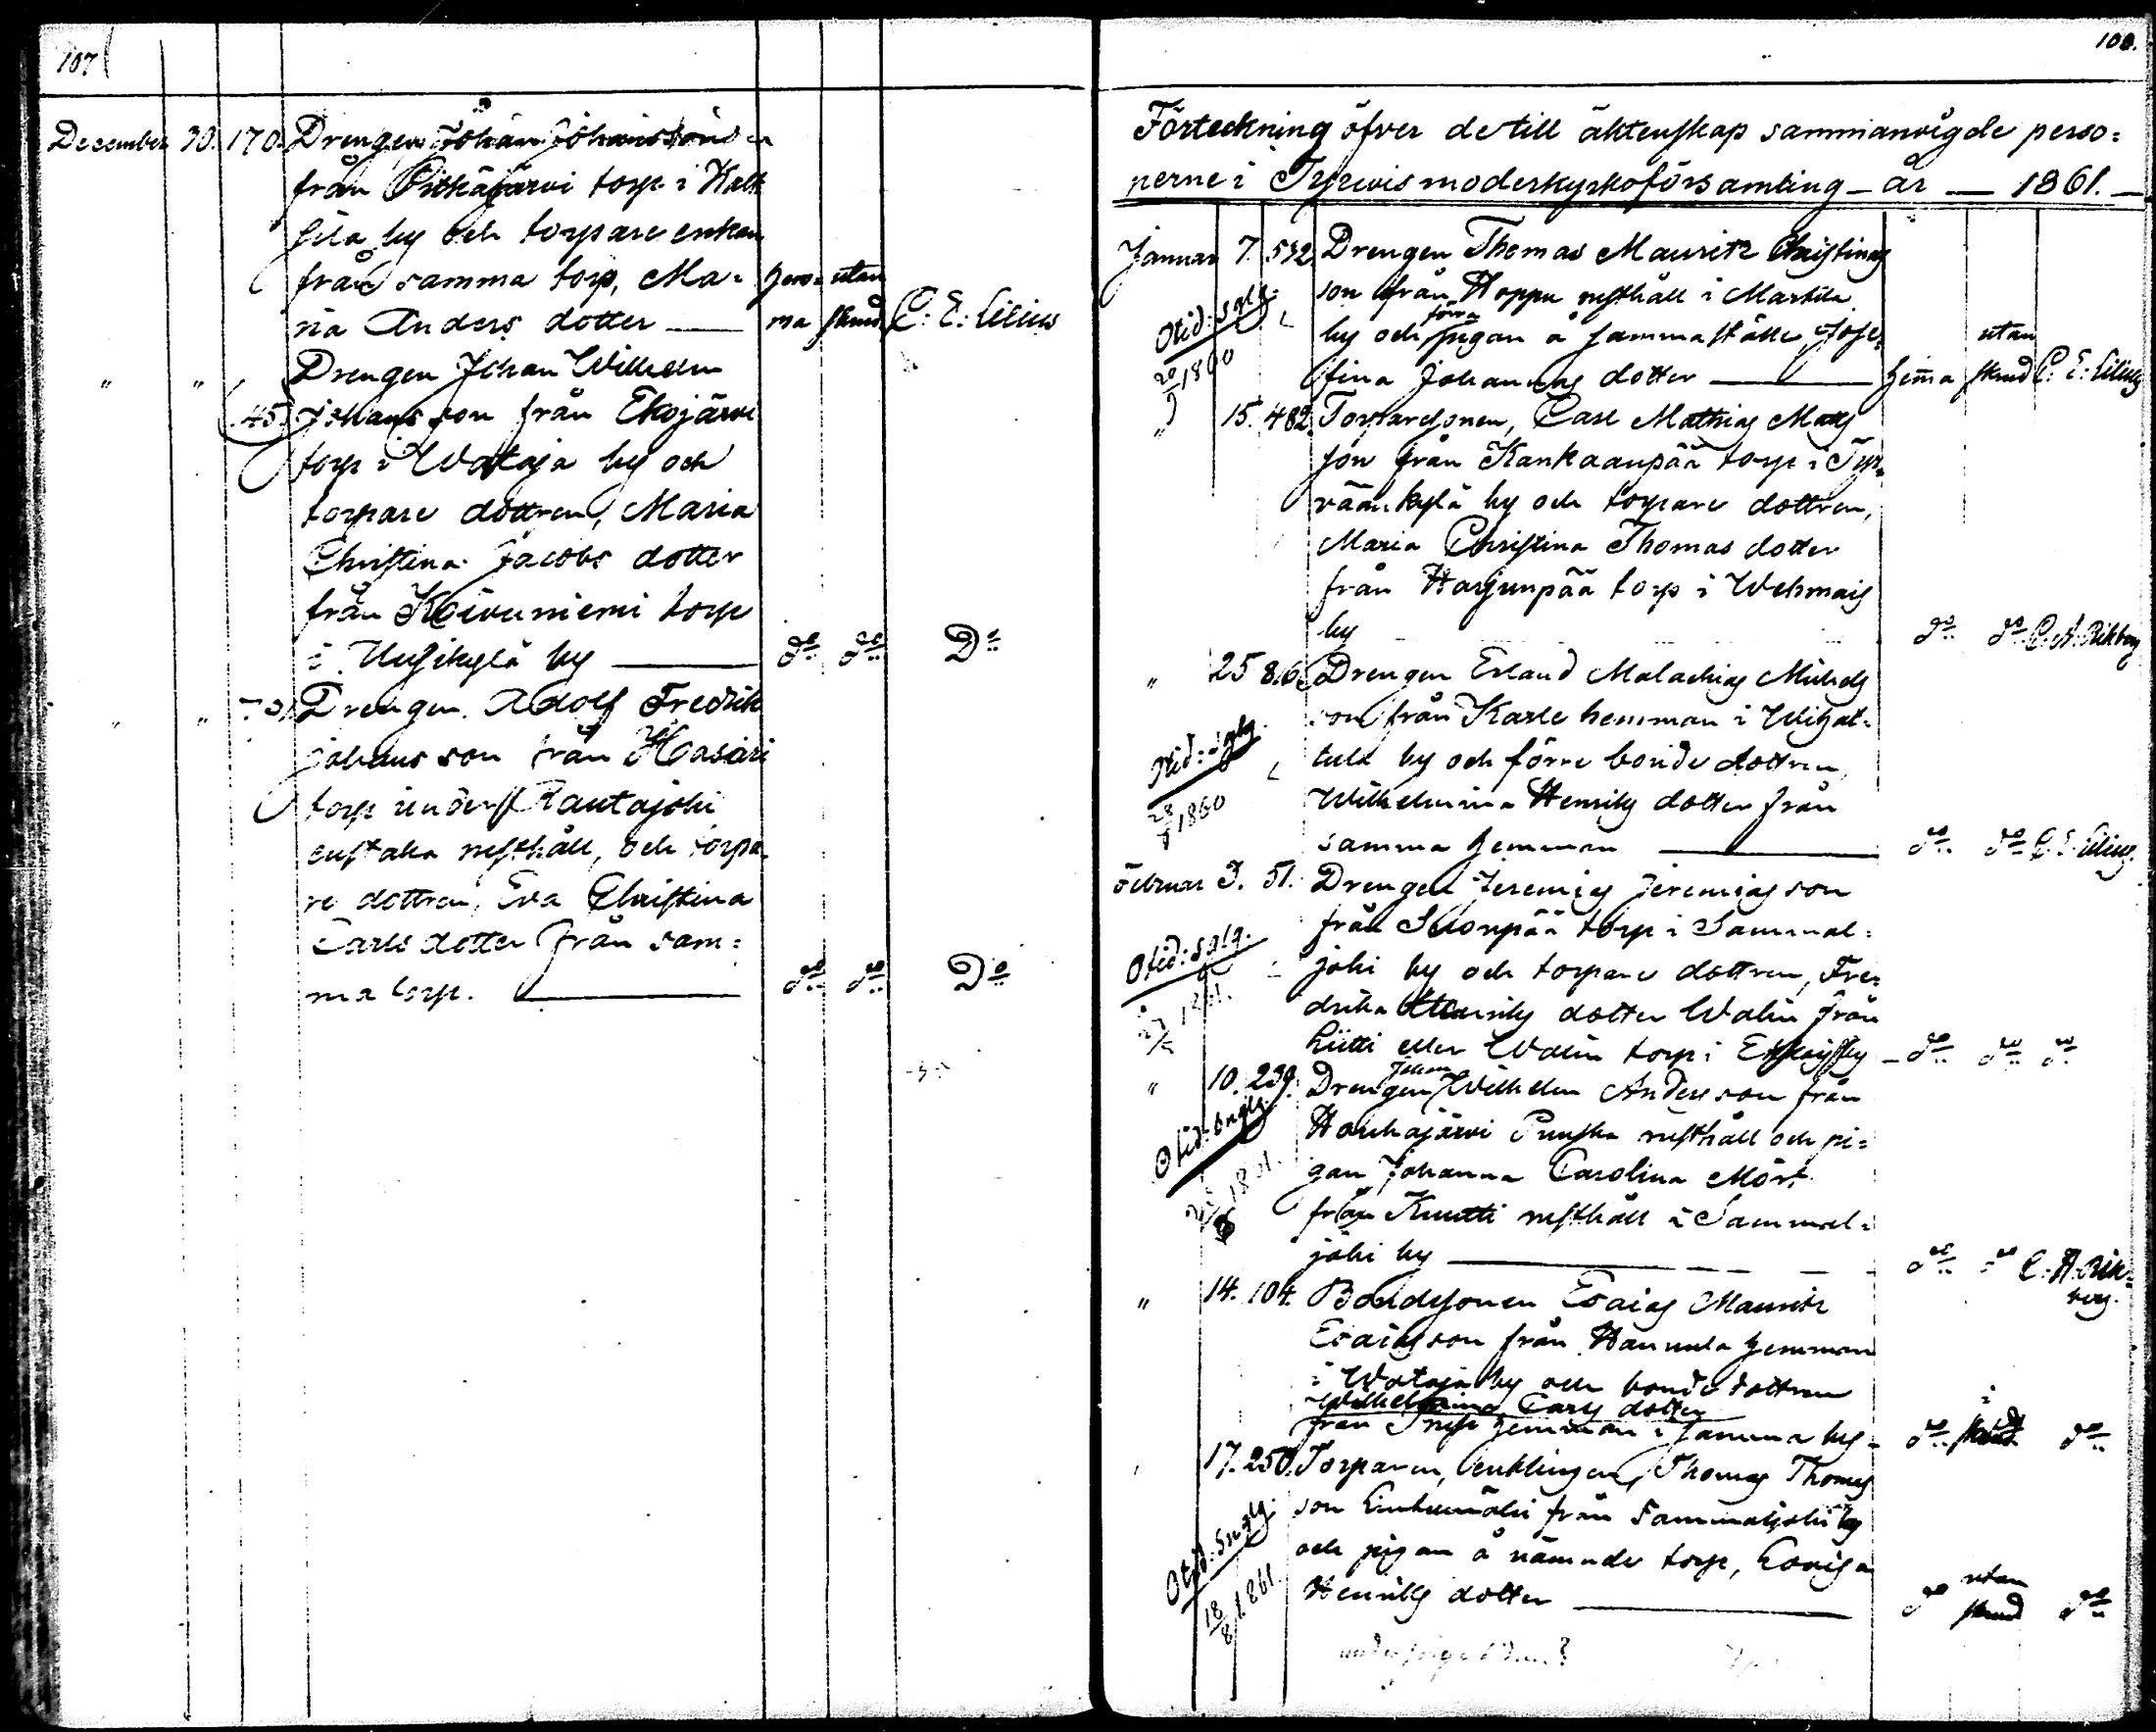 107
December 30. 170. Drengen Johan Johansson
från Pitkäjärvi torp i Kalk
sila by och torpare enkan
från samma torp, Ma-
ria Anders dotter — hem- ma utan skrud C: E: Lilius
" " 45. Drengen Johan Wilhelm
Johansson från Ekojärvi
torp i Wataja by och
torpare dottren, Maria
Christina Jacobs dotter
från Koivuniemi torp
i Uusikylä by — do do Do
" " Drengen Adolf Fredrik
Johansson från Kasari
torp under Rautajoki
enstaka rusthåll, och torpa-
re dottren, Eva Christina
Carls dotter från sam-
ma torp. — do do Do
108.
Förteckning öfver de till äktenskap sammanvigde perso-
nerne i Tyrvis moderkyrkoförsamling – år — 1861. —
Januar 7. 532. Drengen Thomas Mauritz Christians
son från Hoppu rusthåll i Markila
by och förra pigan å samma ställe Jose-
fina Johannes dotter — hemma utan skrud C: E: Lilius
Otid: sglg. 20/9 1860
" 15. 482. Torparesonen, Carl Mathias Matts
son från Kankaanpää torp i Tyr-
väänkylä by och torpare dottren,
Maria Christina Thomas dotter
från Harjunpää torp i Wehmais
by do do C. A. Rikberg
" 25 86. Drengen Erland Malachias Michels
son från Karle hemman i Wihat-
tula by och förre bonde dottren,
Wilhelmina Henriks dotter från
samma hemman — do do C. E. Lilius.
Otid: sglg. 1860
Februar 3. 51. Drengen Jeremias Jeremias son
från Suonpää torp i Sammal-
joki by och torpare dottren, Fre-
drika Henriks dotter Walin från
Liitti eller Walin torp i by – do do do
Otid: sglg. 1861.
" 10. 239. Drengen Johan Wilhelm Anders son från
Houhajärvi Punska rusthåll och pi-
gan Johanna Carolina Mört
från Knutti rusthåll i Sammal-
joki by — do do C. A. Rik- berg.
Otid: 1861.
" 14. 104. Bondesonen Esaias Mauritz
Esaias son från Hannula hemman
i Wataja by och bonde dottren
Wilhelmina Carls dotter
från hemman i samma by – do i skrud do
" 17. 250. Torparen, enklingen, Thomas Thomas
son från Sammaljoki by
och pigan å nämnde torp, Lovisa
Henriks dotter — do utan skrud do
Otid: 18/8 1861.